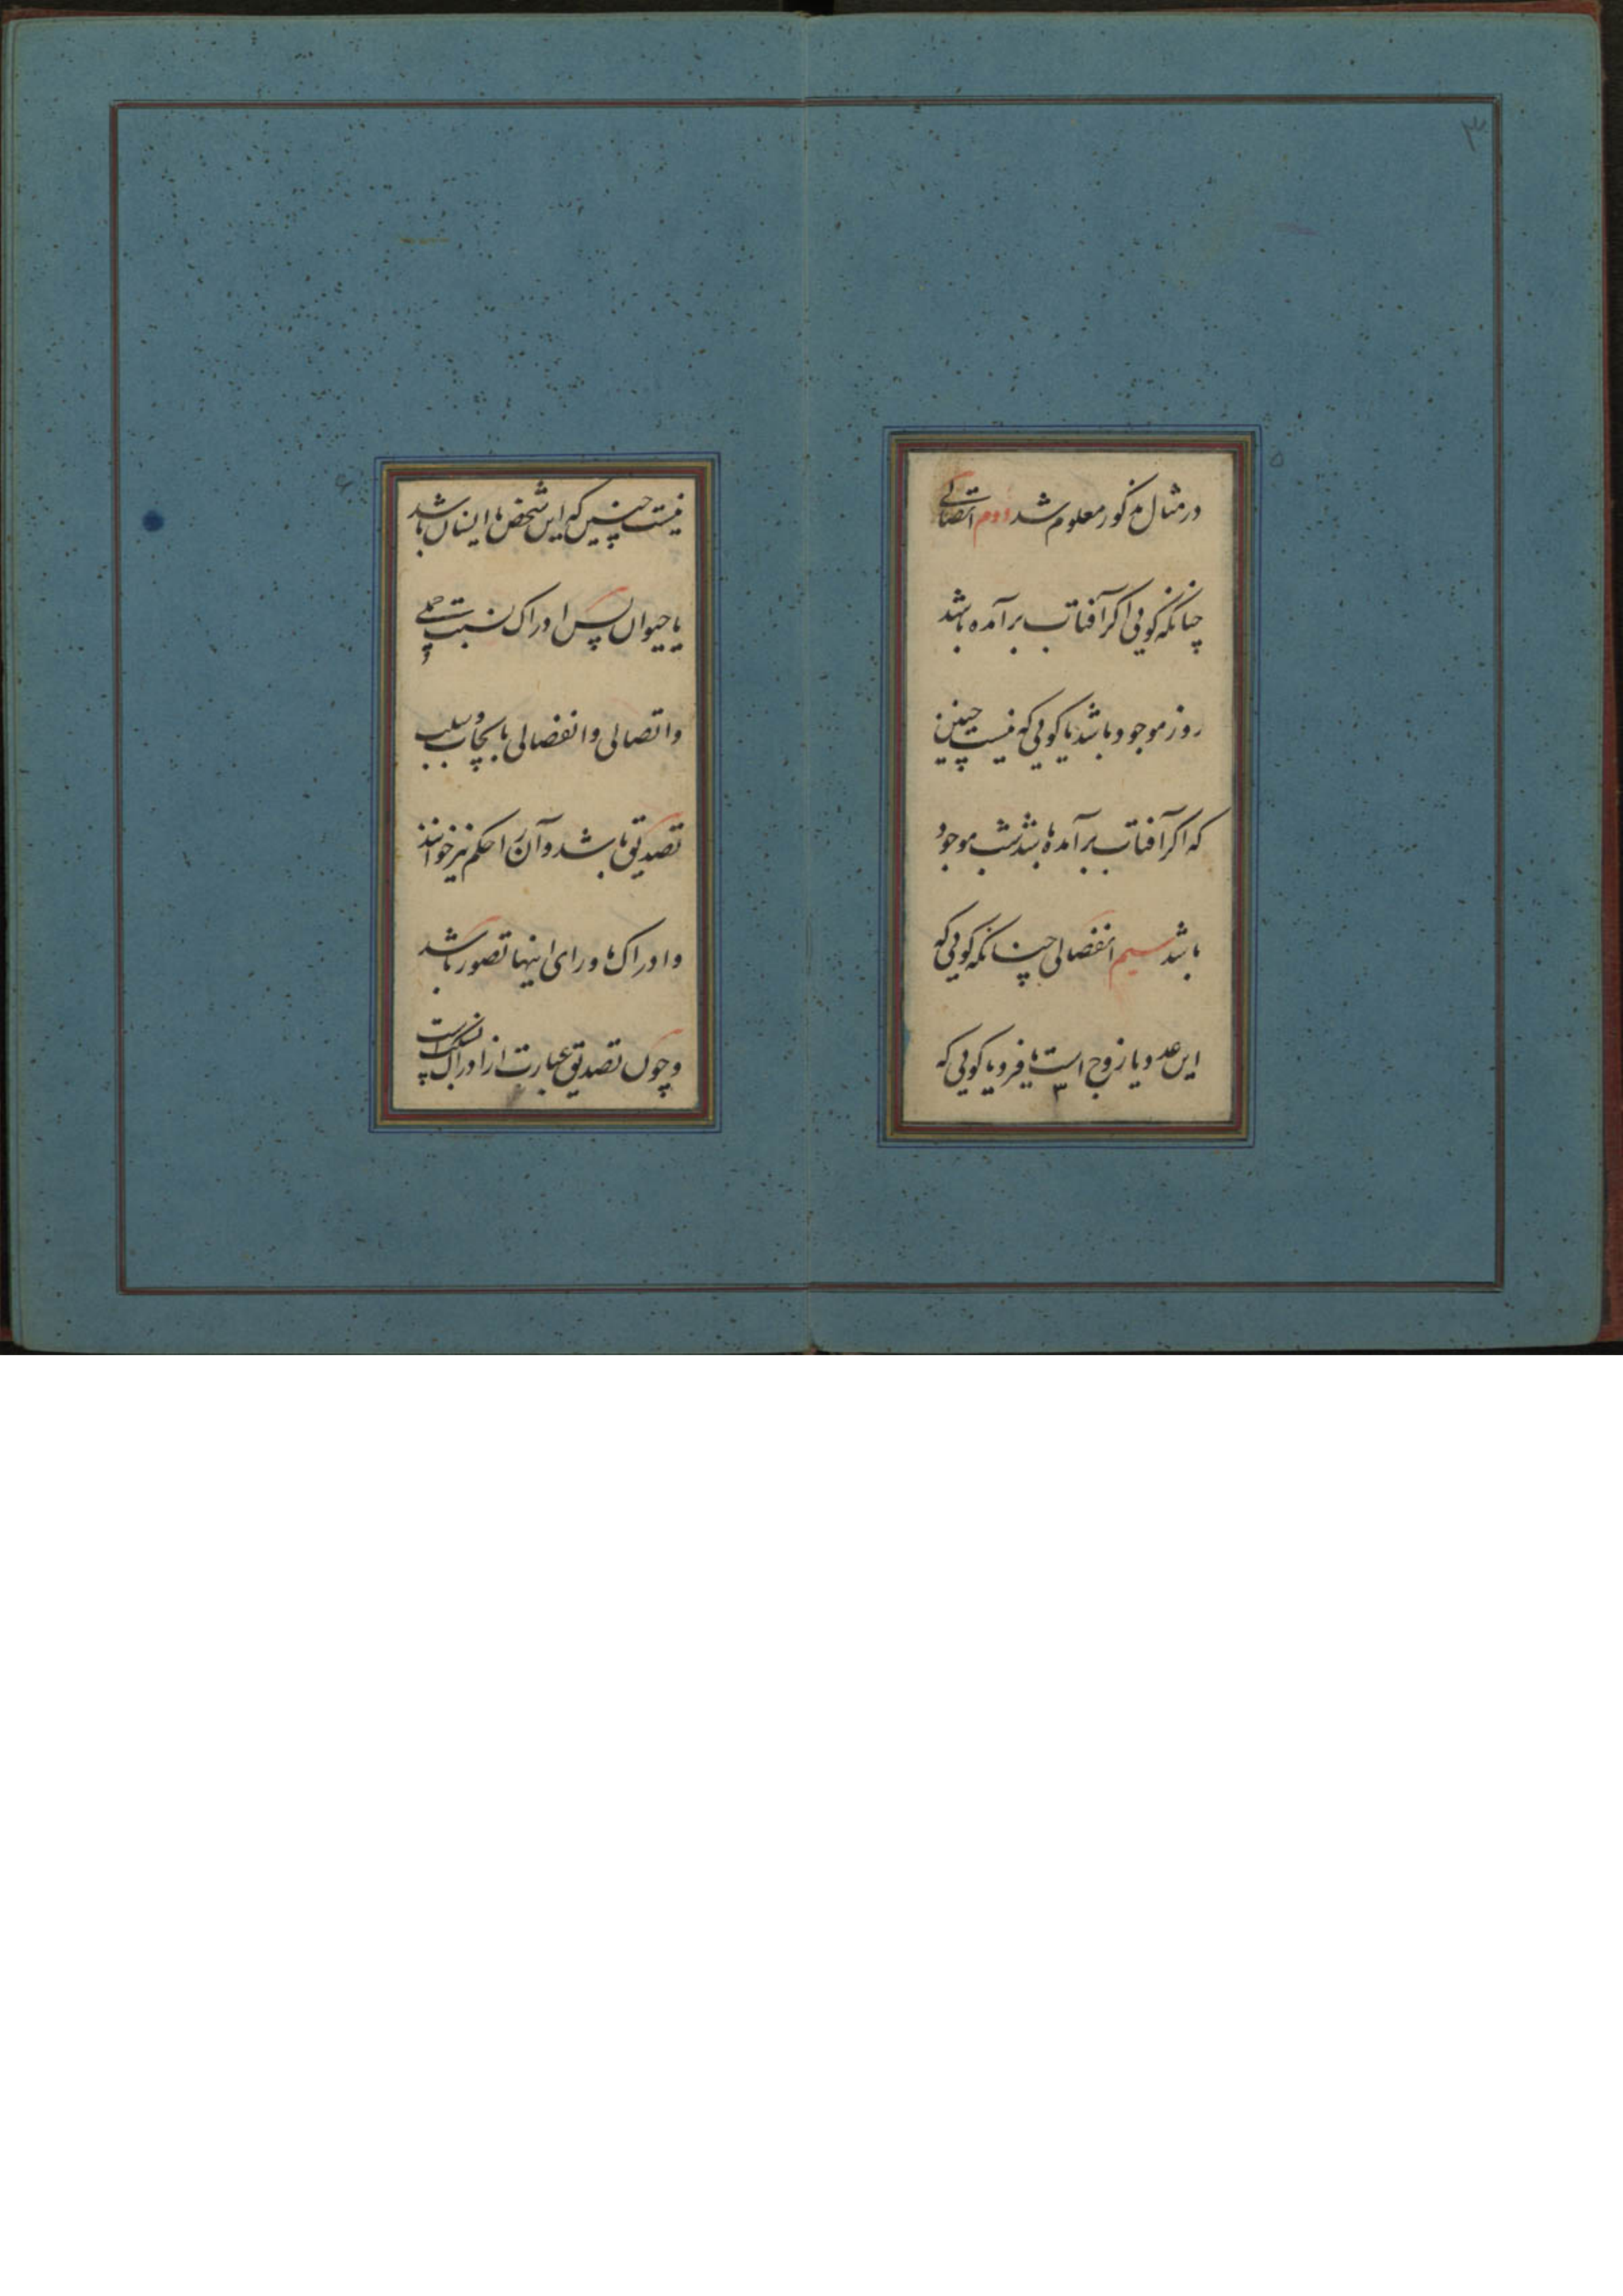 ۳
۵
در مثال مذکور معلوم شد دوم اتصالی
چنانکه گویی اگر آفتاب برآمده باشد
روز موجود باشد یا گویی که نیست چنین
که اگر آفتاب برآمده باشد شب موجود
باشد سیم انفصالی چنانکه گویی که
این عدد یا زوج است یا فرد یا گویی که
۳
۶
نیست چنین که این شخص یا انسان باشد
یا حیوان پس ادراک نسبت حملی
و اتصالی و انفصالی بایجاب و سلب
تصدیق باشد و آن را حکم نیز خوانند
و ادراک ماورای اینها تصور باشد
و چون تصدیق عبارت از ادراک نسبت است